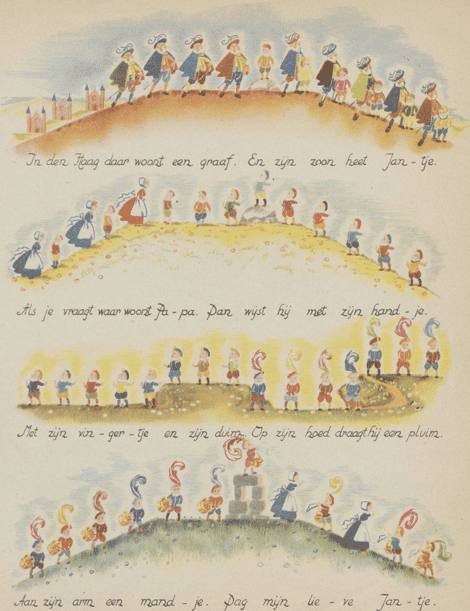 In den Haag daar woont een graaf. En zijn zoon heet Jan-tje.
Als je vraagt waar woont Pa-pa. Dan wijst hij met zijn hand-je.
Met zijn vin-ger-tje en zijn duim. Op zijn hoed draagt hij een pluim.
Aan zijn arm een mand-je. Dag mijn lie-ve Jan-tje.